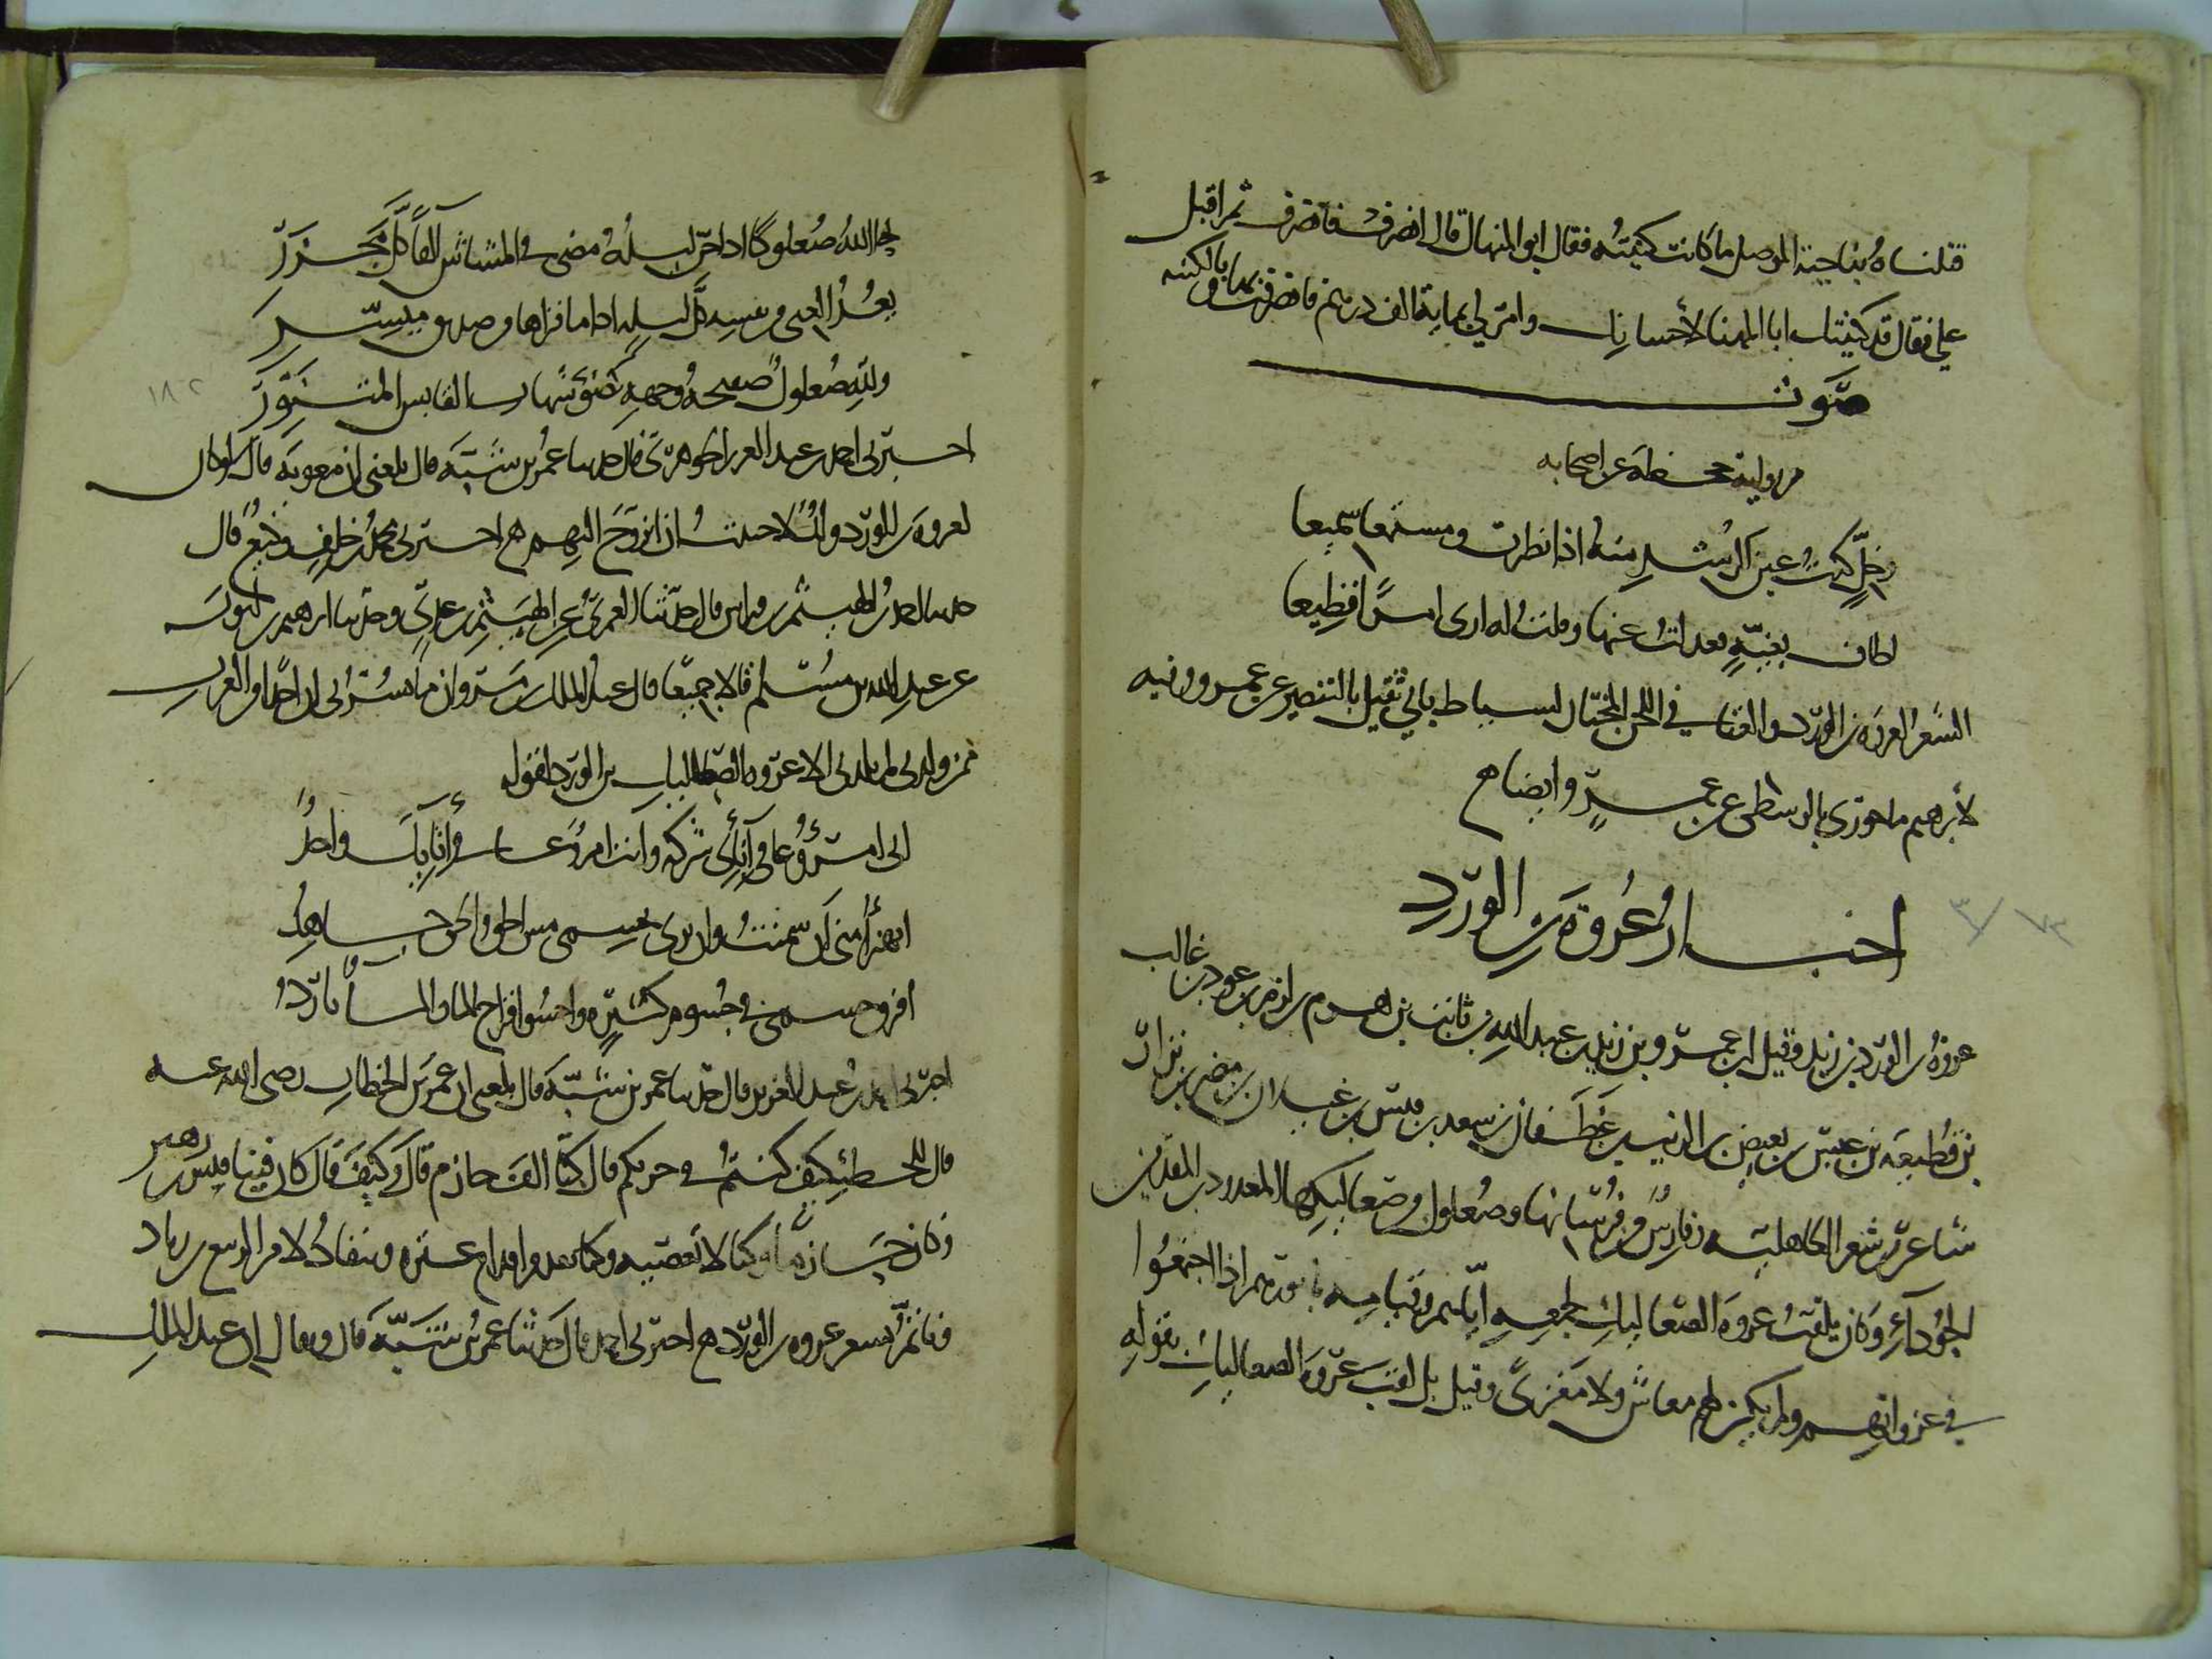 قتلناه بناحية الموصل ما كانت كنيته فقال ابو المنهال قال انصرف فانصرف ثم اقبل
علي فقال قد كنيتك ابا المهنا لأحسانك وامر لي بماية الف درهم فانصرفت بها وبالكنيه
صوت
من رواية جحظة عن اصحابه
وخل كنت عين الرشد منه اذا نظرت ومستمعا سميعا
اطاف بغية فعدلت عنها وقلت له ارى امرا فظيعا
الشعر لعروة بن الورد والغناء في اللحن المختار لسياط ثاني ثقيل بالبنصر عن عمرو وفيه
لأبرهيم ماخوري بالوسطى عن عمرو ايضا
اخبار عروة بن الورد
عروة بن الورد بن زيد وقيل ابن عمرو بن زيد بن عبد الله بن ناشب بن هدم بن لدم بن عود بن غالب
بن قطيعة بن عبس بن بغيض بن الريث بن غطفان بن سعد بن قيس بن عيلان بن مضر بن نزار
شاعر من شعراء الجاهلية وفارس من فرسانها وصعلوك من صعاليكها المعدودين المقدمين
الجوداء وكان يلقب عروة الصعاليك لجمعه اياهم وقيامه بامورهم اذا اخفقوا
في غزواتهم ولم يكن لهم معاش ولا مغزى وقيل بل لقب عروة الصعاليك بقوله
لحا الله صعلوكا اذا جن ليله مضى في المشاش آلفا كل مجزر
يعد الغنى من نفسه كل ليلة اذا ما قراها من صديق ميسر
ولله صعلوك صفيحة وجهه كضوء شهاب القابس المتنور
١٨٢
اخبرني احمد بن عبد العزيز الجوهري قال حدثنا عمر بن شبة قال بلغني ان معوية قال لو كان
لعروة بن الورد ولد لاحببت ان اتزوج اليهم اخبرني محمد بن خلف وكيع قال
حدثنا احمد بن الهيثم بن فراس قال حدثنا العمري عن الهيثم بن عدي وحدثنا ابرهيم بن ايوب
عن عبد الله بن مسلم قالا جميعا قال عبد الملك بن مروان ما يسرني ان احدا من العرب
ممن ولدني لم يلدني الا عروة الصعاليك بن الورد لقوله
اني امرؤ عافي انائي شركة وانت امرؤ عافي انايك واحد
اتهزأ مني ان سمنت وان ترى بجسمي مس الحق والحق جاهد
افرق جسمي في جسوم كثيرة واحسو اقراح الماء والماء بارد
اخبرني احمد بن عبد العزيز قال حدثنا عمر بن شبة قال بلغني ان عمر بن الخطاب رضى الله عنه
قال للحطيئة كيف كنتم في حربكم قال كنا الف حازم قال وكيف قال كان فينا قيس بن زهير
وكان حازما وكنا لا نعصيه وكنا نقدم اقدام عنترة وننقاد لامر الربيع بن زياد
وناتم بشعر عروة بن الورد اخبرني احمد قال حدثنا عمر بن شبة قال ويقال ان عبد الملك